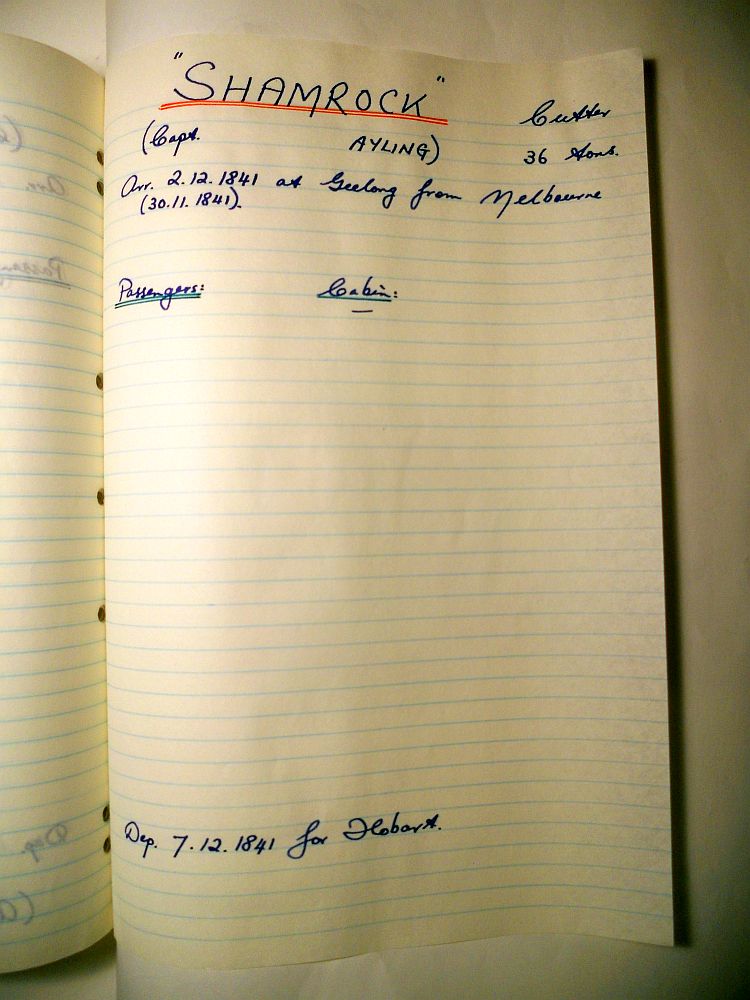 "SHAMROCK"
Cutter
(Capt. AYLING) 36 tons.
Arr. 2.12.1841 at Geelong from Melbourne
(30.11.1841).
Passengers: Cabin:
—
Dep. 7.12.1841 for Hobart.